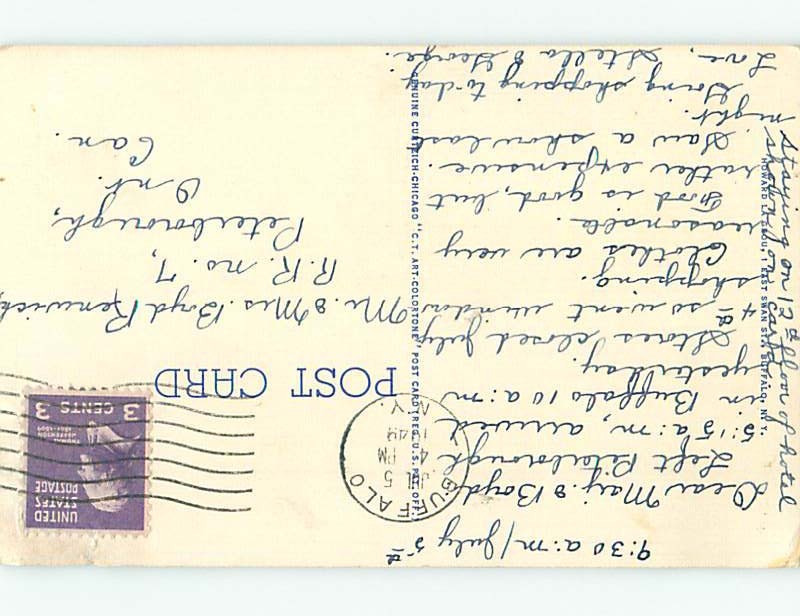 9:30 a.m/July 5th
Dear Marj & Boyd
Left Peterborough
5:15 a.m, arrived
in Buffalo 10 a.m
yesterday.
Stores closed July
4th so went window
shopping.
Clothes are very
reasonable.
Food is good, but
rather expensive.
Saw a show last
night.
Going shopping to-day.
Love, Stella & George.
Staying on 12th floor of hotel
shown on card
POST CARD
Mr. & Mrs. Boyd Renwick,
R.R. no. 7,
Peterborough,
Ont.
Can.
BUFFALO
JUL 5
4 PM
1949
N.Y.
UNITED
STATES
POSTAGE
THOMAS
JEFFERSON
3 CENTS 3
GENUINE CURTEICH-CHICAGO "C.T. ART-COLORTONE" POST CARD (REG. U.S. PAT. OFF.)
1 EAST SWAN ST., BUFFALO, N.Y.